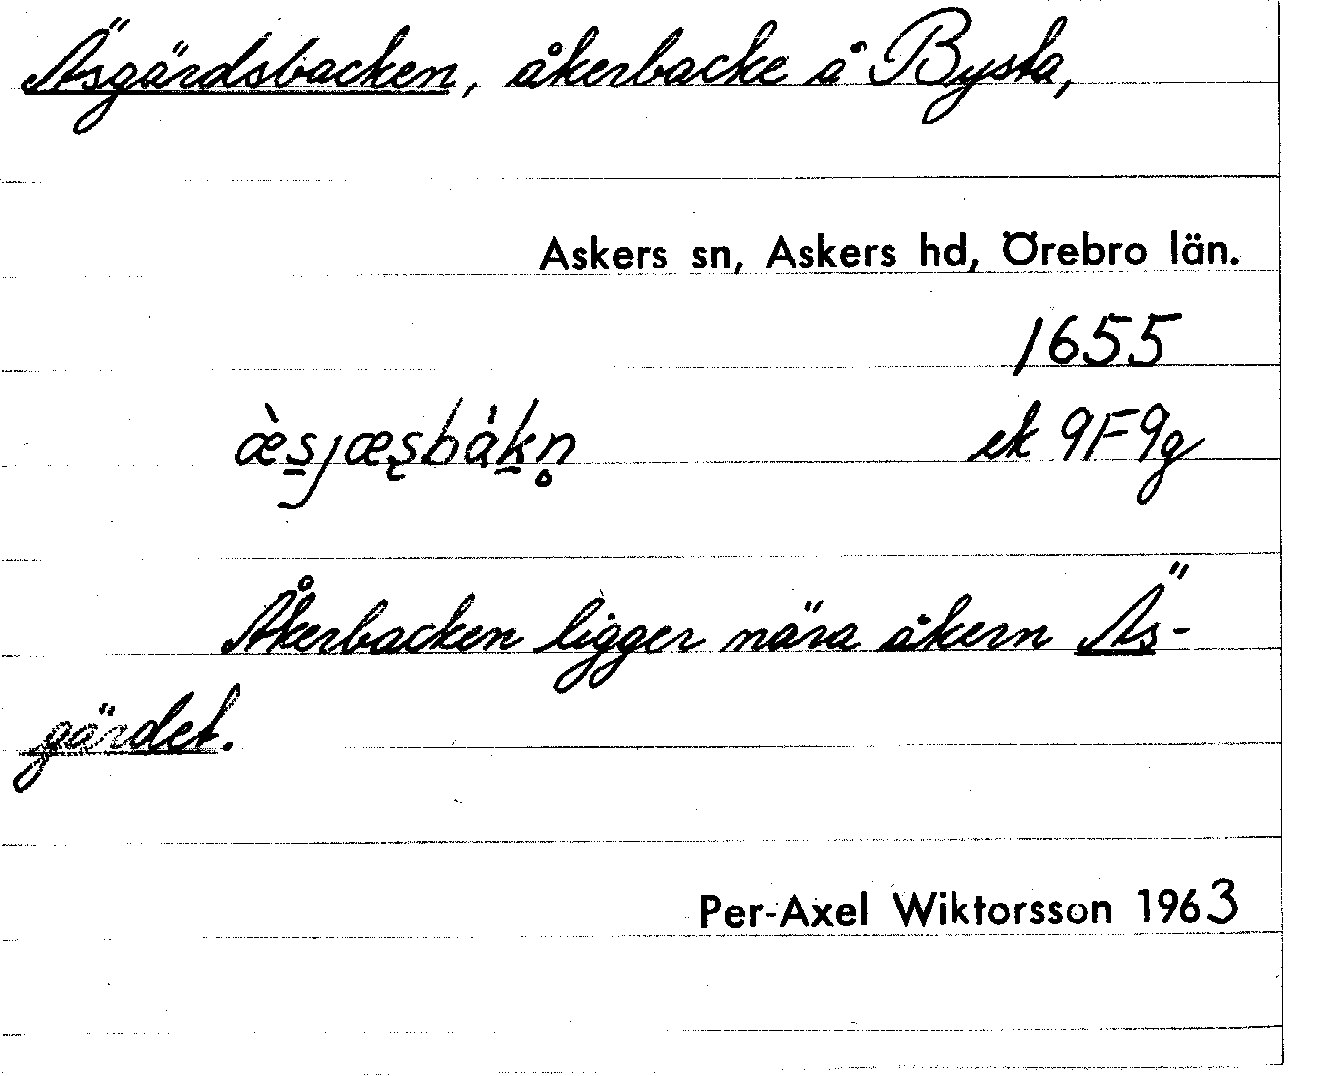 Äsgärdsbacken, åkerbacke å Bysta,
Askers sn, Askers hd, Örebro län.
1655
æ̀s̱jæşbàḵn̥ ek 9F9g
Åkerbacken ligger nära åkern Äs-
gärdet.
Per-Axel Wiktorsson 1963